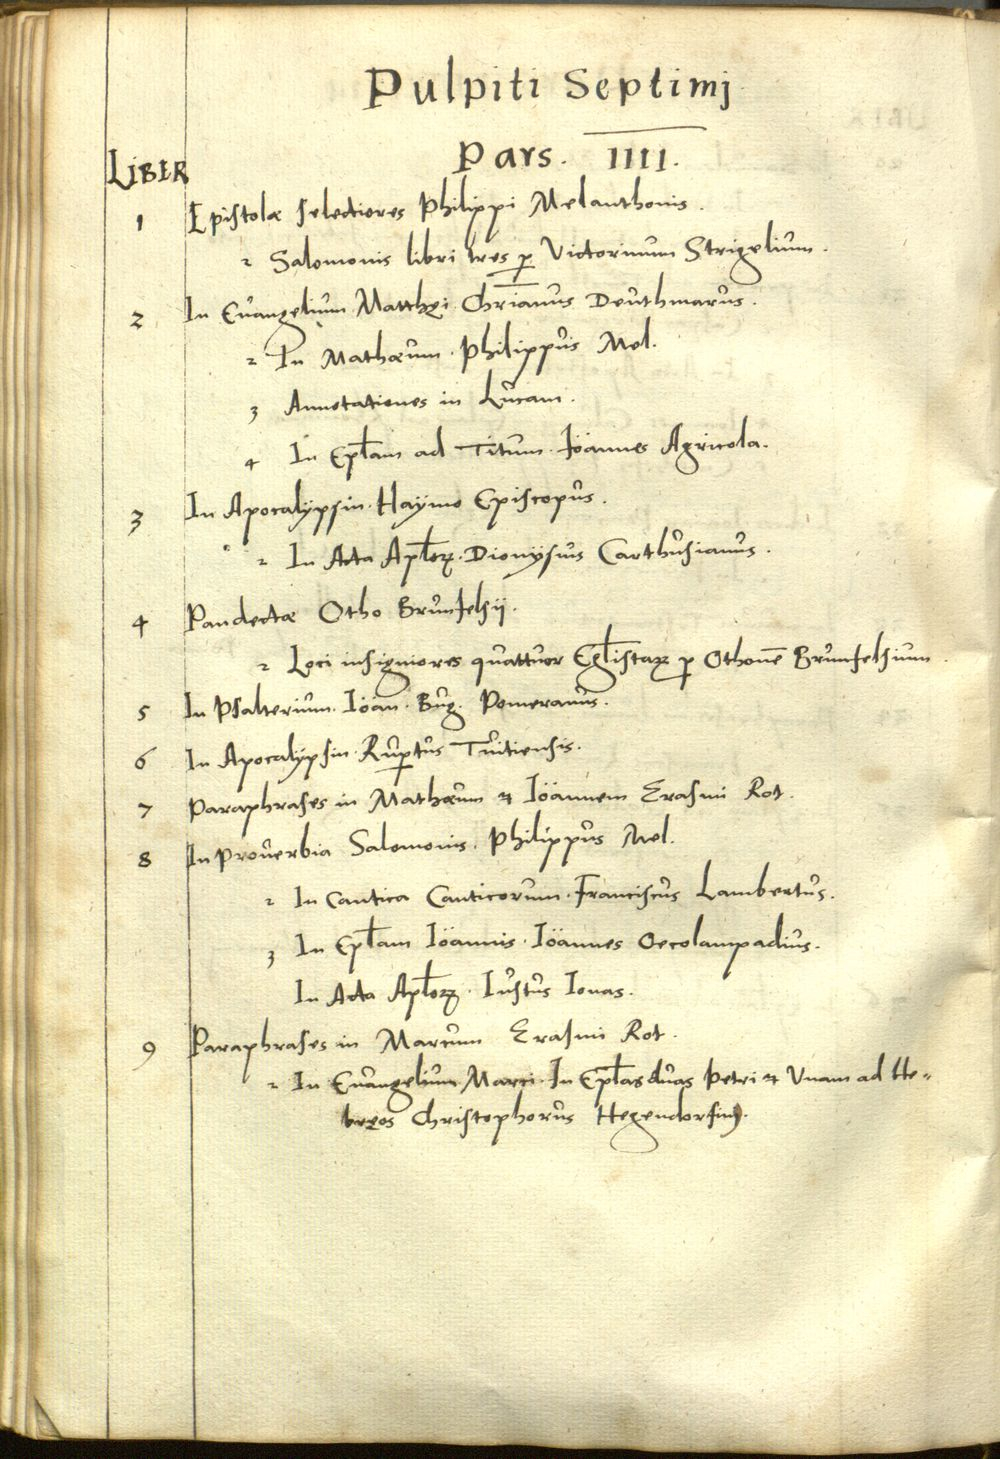 Pulpiti Septimj
Pars. IIII.
LIBER
1 Epistolæ selectiores Philippi Melanthonis.
2 Salomonis libri tres p̱ Victorinum Strigelium.
2 In Euangelium Matthęi. Chrīanus Deuthmarus.
2 In Mathæum. Philippus Mel.
3 Annotationes in Lucam.
4 In Epl̄am ad Titum. Iöannes Agricola.
3 In Apocalypsin. Haymo Episcopus.
2 In Acta Apl̄oꝝ. Dionysius Carthusianus.
4 Pandectæ Otho Brunfelsij.
2 Loci insigniores quattuor Egl̄istaꝝ p̱ Othonē Brunfelsium.
5 In Psalterium. Iöan. Bug. Pomeranus.
6 In Apocalypsin. Rup̱tus Tuitiensis.
7 Paraphrases in Mathæum & Iöannem Erasmi Rot.
8 In Prouerbia Salomonis. Philippus Mel.
2 In Cantica Canticorum. Franciscus Lambertus.
3 In Epl̄am Iöannis. Iöannes Oecolampadius.
In Acta Apl̄oꝝ. Iustus Ionas.
9 Paraphrases in Marcum Erasmi Rot.
2 In Euangelium Marci. In Epl̄as duas Petri & Vnam ad He-
bręos Christophorus Hegendorfinꝰ.